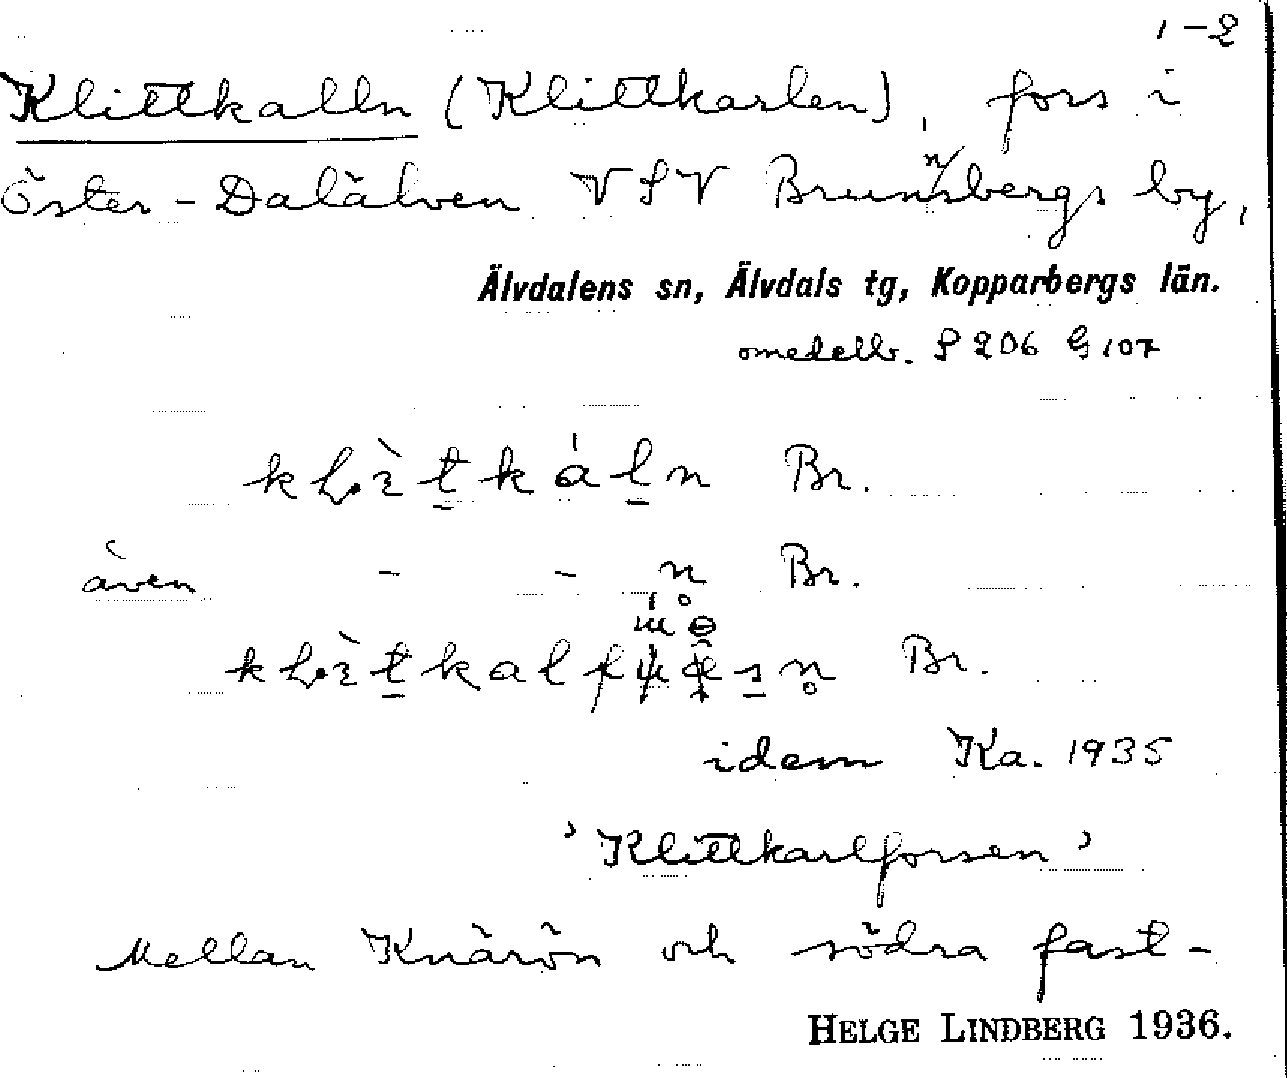 1-2
Klittkalln (Klittkarlen), fors i
Öster-Dalälven VSV Brunnsbergs by,
Älvdalens sn, Älvdals tg, Kopparbergs län.
omedelb. S 206 G 107
Br.
även - - n̥ Br.
Br.
idem Ka. 1935
'Klittkarlforsen'
Mellan Knärön och södra fast-
HELGE LINDBERG 1936.